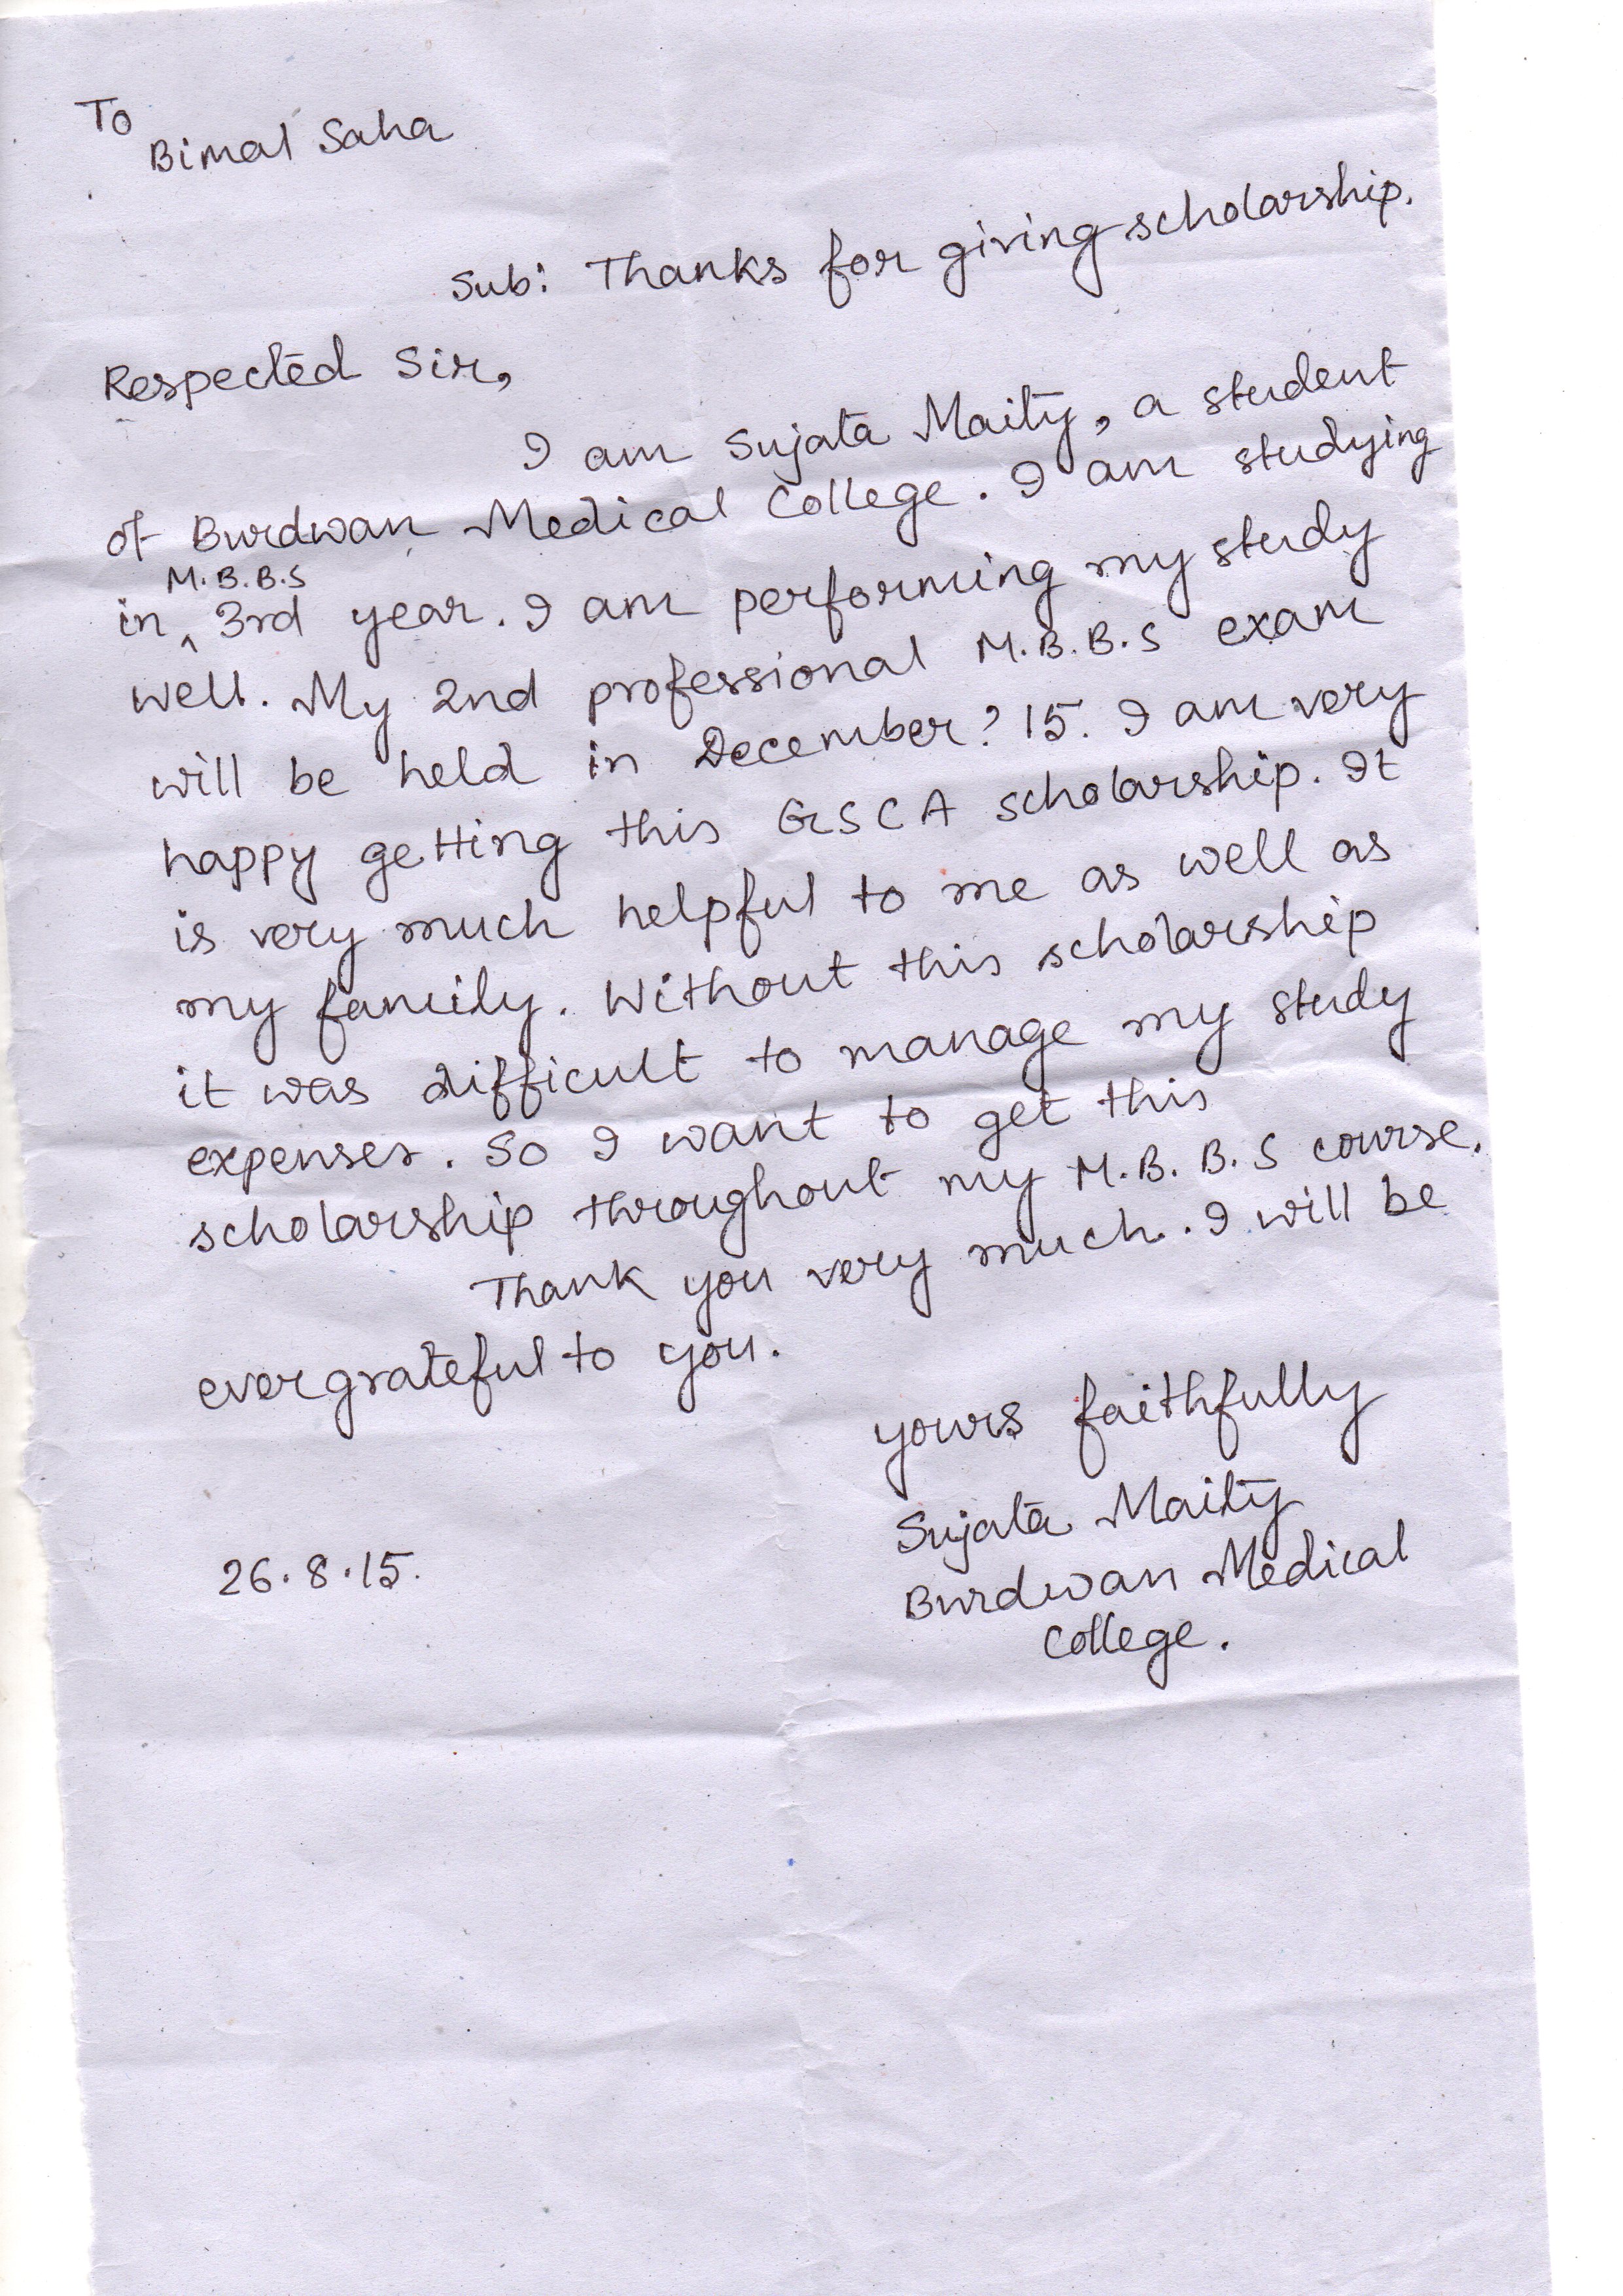 To
Bimal Saha
Sub: Thanks for giving scholarship.
Respected Sir,
I am Sujata Maity, a student
of Burdwan Medical College. I am studying
M.B.B.S
in ^ 3rd year. I am performing my study
well. My 2nd professional M.B.B.S exam
will be held in December? 15. I am very
happy getting this GSCA scholarship. It
is very much helpful to me as well as
my family. Without this scholarship
it was difficult to manage my study
expenses. So I want to get this
scholarship throughout my M.B.B.S course.
Thank you very much. I will be
ever grateful to you.
yours faithfully
Sujata Maity
26.8.15.
Burdwan Medical
College.